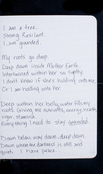 I am a tree.
Strong. Resilient.
I am grounded.
My roots go deep.
Deep down inside Mother Earth.
Intertwined within her so tightly
I don't know if she's holding onto me,
Or I am holding onto her.
Deep within her belly water fills my
roots. Giving me nutrients, energy,
vigor, stamina.
Everything I need to stay grounded.
Down below, way down, deep down
Down where the darkness is still and
quiet. I have peace.